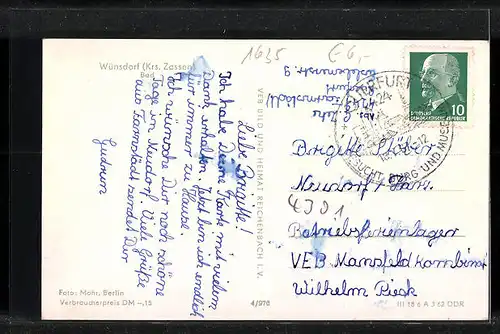 Wünsdorf (Krs. Zossen)
Bad
1635
€ 6,-
Liebe Brigitte!
Ich habe Deine Karte mit vielem
Dank erhalten. Jetzt bin ich endlich
für immer zu Hause!
Ich wünsche Dir noch schöne
Tage in Neudorf. Viele Grüße
aus sendet Dir
Gudrun
VEB BILD UND HEIMAT REICHENBACH I. V.
Abs.
10
DEUTSCHE DEMOKRATISCHE REPUBLIK
ERFURT
BURG UND
Brigitte
Neudorf / Harz
4301
Betriebsferienlager
VEB Mansfeldkombinat
Wilhelm Pieck
Foto: Mohr, Berlin
Verbraucherpreis DM -,15
4/976
III 18 6 A 3 62 DDR